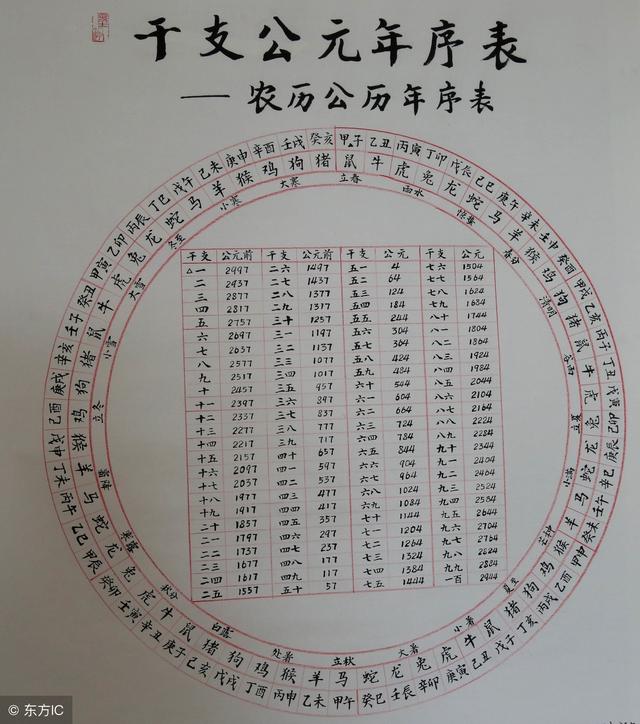 干支公元年序表
——农历公历年序表
甲子 乙丑 丙寅 丁卯 戊辰 己巳 庚午 辛未 壬申 癸酉 甲戌 乙亥 丙子 丁丑 戊寅 己卯 庚辰 辛巳 壬午 癸未 甲申 乙酉 丙戌 丁亥 戊子 己丑 庚寅 辛卯 壬辰 癸巳 甲午 乙未 丙申 丁酉 戊戌 己亥 庚子 辛丑 壬寅 癸卯 甲辰 乙巳 丙午 丁未 戊申 己酉 庚戌 辛亥 壬子 癸丑 甲寅 乙卯 丙辰 丁巳 戊午 己未 庚申 辛酉 壬戌 癸亥
鼠 牛 虎 兔 龙 蛇 马 羊 猴 鸡 狗 猪 鼠 牛 虎 兔 龙 蛇 马 羊 猴 鸡 狗 猪 鼠 牛 虎 兔 龙 蛇 马 羊 猴 鸡 狗 猪 鼠 牛 虎 兔 龙 蛇 马 羊 猴 鸡 狗 猪 鼠 牛 虎 兔 龙 蛇 马 羊 猴 鸡 狗 猪
立春 雨水 惊蛰 春分 清明 谷雨 立夏 小满 芒种 夏至 小暑 大暑 立秋 处暑 白露 秋分 寒露 霜降 立冬 小雪 大雪 冬至 小寒 大寒
干支 公元前 干支 公元前 干支 公元 干支 公元
△一 2997 二六 1497 五一 4 七六 1504
二 2937 二七 1437 五二 64 七七 1564
三 2877 二八 1377 五三 124 七八 1624
四 2817 二九 1317 五四 184 七九 1684
五 2757 三十 1257 五五 244 八十 1744
六 2697 三一 1197 五六 304 八一 1804
七 2637 三二 1137 五七 364 八二 1864
八 2577 三三 1077 五八 424 八三 1924
九 2517 三四 1017 五九 484 八四 1984
十 2457 三五 957 六十 544 八五 2044
十一 2397 三六 897 六一 604 八六 2104
十二 2337 三七 837 六二 664 八七 2164
十三 2277 三八 777 六三 724 八八 2224
十四 2217 三九 717 六四 784 八九 2284
十五 2157 四十 657 六五 844 九十 2344
十六 2097 四一 597 六六 904 九一 2404
十七 2037 四二 537 六七 964 九二 2464
十八 1977 四三 477 六八 1024 九三 2524
十九 1917 四四 417 六九 1084 九四 2584
二十 1857 四五 357 七十 1144 九五 2644
二一 1797 四六 297 七一 1204 九六 2704
二二 1737 四七 237 七二 1264 九七 2764
二三 1677 四八 177 七三 1324 九八 2824
二四 1617 四九 117 七四 1384 九九 2884
二五 1557 五十 57 七五 1444 一百 2944
东方IC